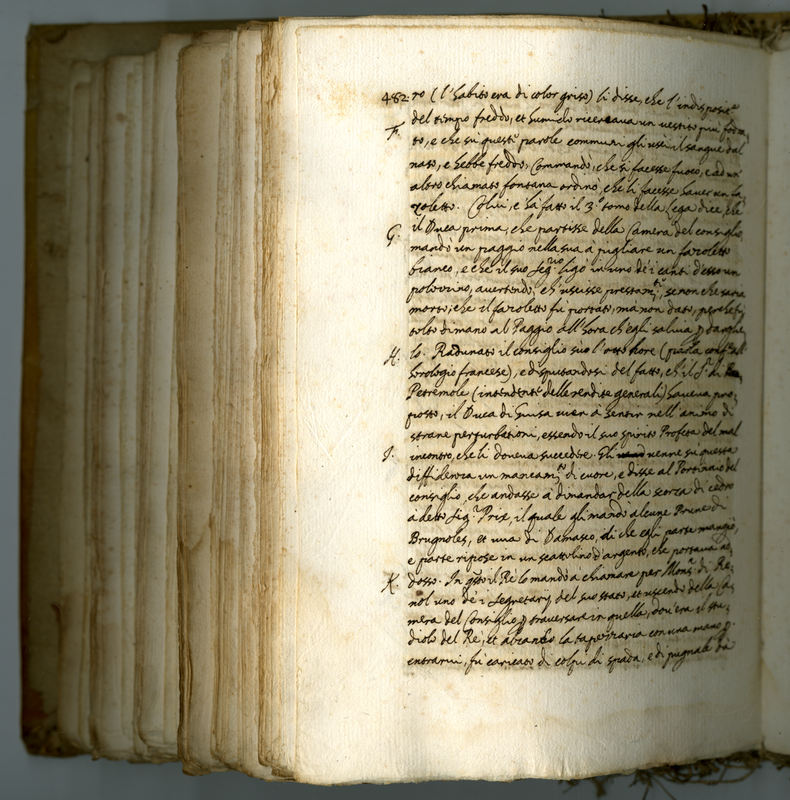 482. ro (l'habito era di color griso) li disse, che l'indispositne
del tempo freddo, et humido ricercava un vestito piu fode
F. to, e che su queste parole communi gli uscì il sangue dal
naso, e hebbe freddo, Commandò, che si facesse fuoco, e ad un
altro chiamato fontana ordinò, che li facesse haver un fa,
zoletto. Colui, c'hà fatto il 3.º tomo della lega dice, che
G. il Duca prima, che partisse della Camera del consiglio
mandò un paggio nella sua à pigliare un fazoletto
bianco, e che il suo Segrio ligò in uno de i canti d'esso un
polizzino, avertendo, ch'uscisse prestamte, se non che saria
morto; che il fazoletto fù portato, mà non dato, perche fù
tolto di mano al Paggio all'hora ch'egli saliva p darglie,
H. lo. Radunato il consiglio sù l'otto hore
horologio francese), e disputandosi del fatto, ch'il Sr. di
Petremole (intendente delle rendite generali) haveva pro,
posto, il Duca di Guisa vien à sentir nell'animo di
strane perturbationi, essendo il suo spirito Profeta del mal
I. incontro, che li doveva succedere. Gli venne su questa
diffidenza un mancamto di cuore, e disse al Portinaio del
consiglio, che andasse à dimandar della scorza di cedro
à detto Sigr Prix, il quale gli mandò alcune Prune di
Brugnoles, et una di Damasco, di che egli parte mangiò,
e parte ripose in un scattolino d'argento, che portava ad,
K. dosso. In qsto il Rè lo mandò à chiamare per Monsr di Re,
nol uno de i Segretarij del suo stato, et uscendo della Ca,
mera del Consiglio, p traversare in quella, dov'era il stu,
diolo del Re, et alzando la tapezzaria con una mano p
entrarvi, fù caricato di colpi di spada, e di pugnale da